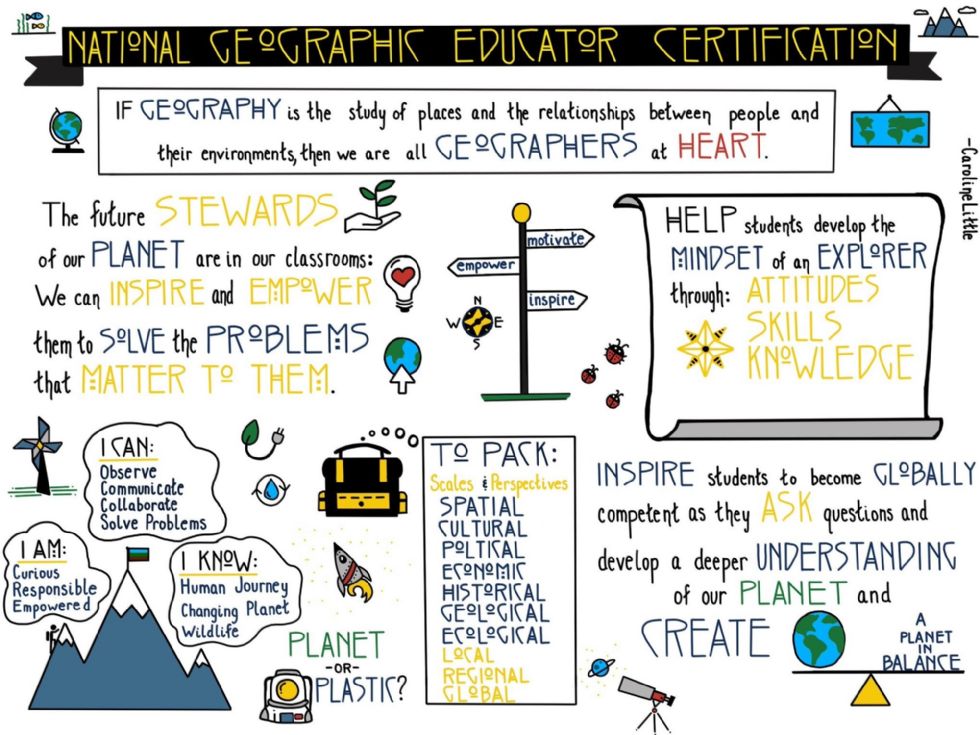 NATIONAL GEOGRAPHIC EDUCATOR CERTIFICATION
IF GEOGRAPHY is the study of places and the relationships between people and
their environments, then we are all GEOGRAPHERS at HEART.
-Caroline Little
The future STEWARDS
of our PLANET are in our classrooms:
We can INSPIRE and EMPOWER
them to SOLVE the PROBLEMS
that MATTER TO THEM.
motivate
empower
inspire
N
W E
S
HELP students develop the
MINDSET of an EXPLORER
through: ATTITUDES
SKILLS
KNOWLEDGE
I CAN:
Observe
Communicate
Collaborate
Solve Problems
I AM:
Curious
Responsible
Empowered
I KNOW:
Human Journey
Changing Planet
Wildlife
PLANET
-OR-
PLASTIC?
TO PACK:
Scales & Perspectives
SPATIAL
CULTURAL
POLTICAL
ECONOMIC
HISTORICAL
GEOLOGICAL
ECOLOGICAL
LOCAL
REGIONAL
GLOBAL
INSPIRE students to become GLOBALLY
competent as they ASK questions and
develop a deeper UNDERSTANDING
of our PLANET and
CREATE
A
PLANET
IN
BALANCE